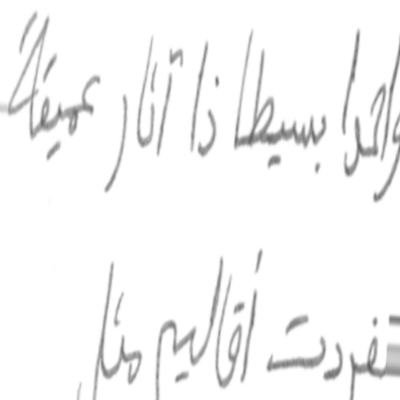 واحدا بسيطا ذا آثار عميقة
تفردت أقاليم مثل